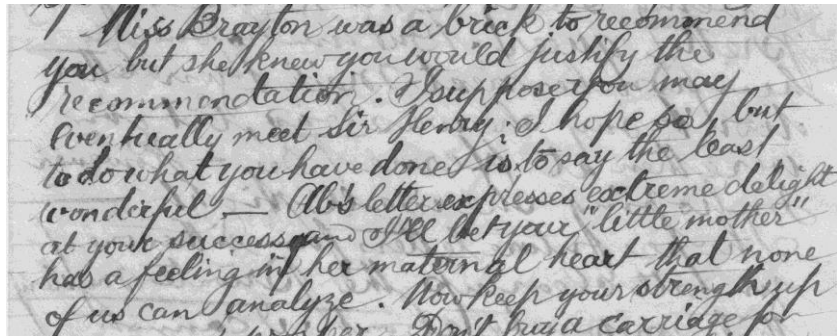 Miss Brayton was a brick to recommend
you but she knew you would justify the
recommendation. I suppose you may
eventually meet Sir Henry; I hope so, but
to do what you have done is to say the least
wonderful — Ab's letter expresses extreme delight
at your success and I'll bet your "little mother"
has a feeling in her maternal heart that none
of us can analyze. Now keep your strength up
her. Don't buy a carriage for